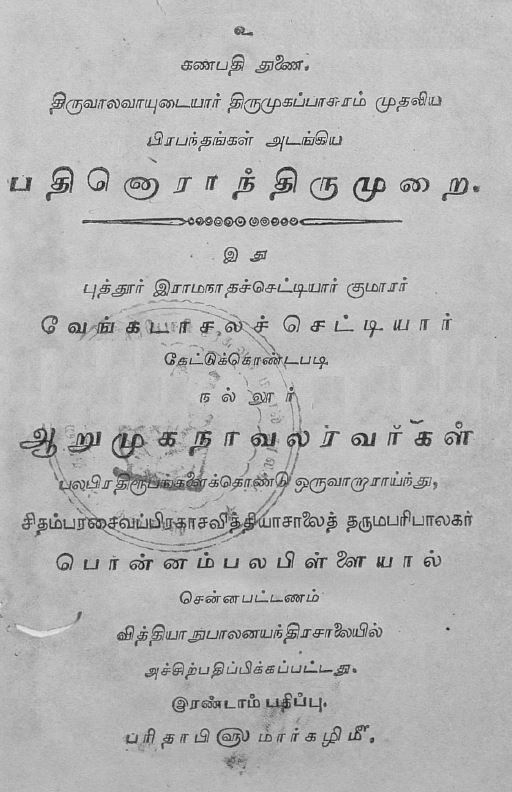 உ
கணபதி துணை.
திருவாலவாயுடையார் திருமுகப்பாசுரம் முதலிய
பிரபந்தங்கள் அடங்கிய
பதினொராந்திருமுறை.
இது
புத்தூர் இராமநாதச்செட்டியார் குமாரர்
வேங்கடாசலச் செட்டியார்
கேட்டுக்கொண்டபடி
நல்லூர்
ஆறுமுகநாவலரவர்கள்
பலபிரதிரூபங்களைக்கொண்டு ஒருவாறாராய்ந்து,
சிதம்பரசைவப்பிரகாசவித்தியாசாலைத் தருமபரிபாலகர்
பொன்னம்பலபிள்ளையால்
சென்னபட்டணம்
வித்தியாநுபாலனயந்திரசாலையில்
அச்சிற்பதிப்பிக்கப்பட்டது.
இரண்டாம் பதிப்பு.
பரிதாபி௵ மார்கழி௴.